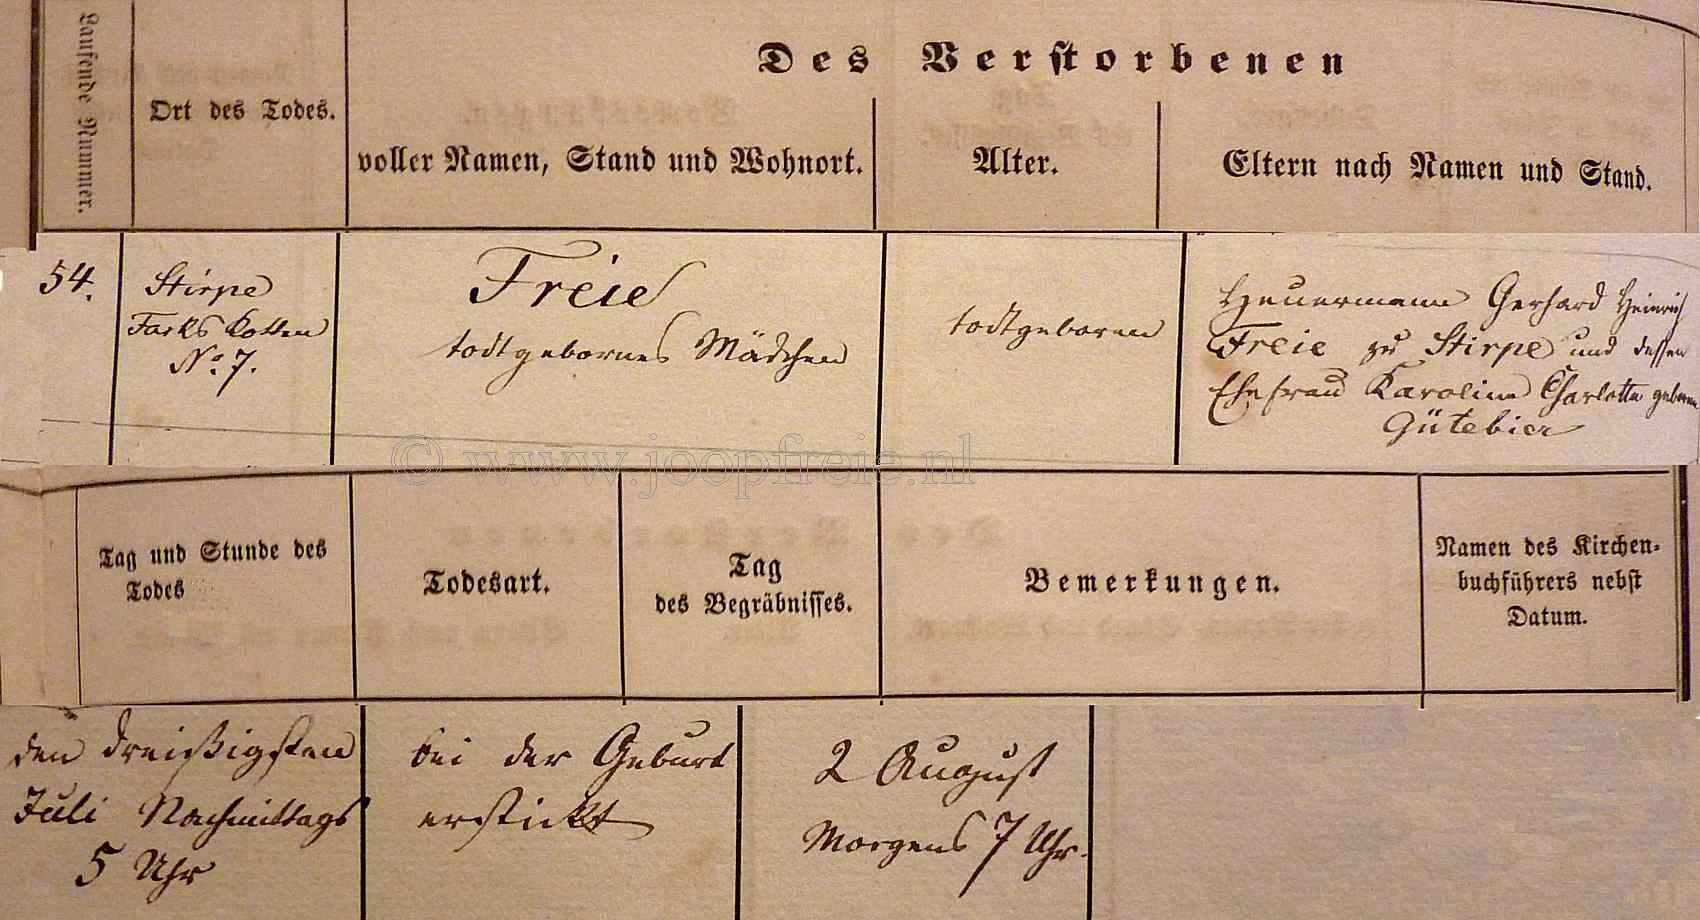 Laufende Nummer.
Ort des Todes.
Des Verstorbenen
voller Namen, Stand und Wohnort.
Alter.
Eltern nach Namen und Stand.
54.
Stirpe
Farks Kotten
No. 7.
Freie
todtgebornes Mädchen
todtgeboren
Heuermann Gerhard Heinrich
Freie zu Stirpe und dessen
Ehefrau Karoline Charlotte geborne
Gütebier
© www.joopfreie.nl
Tag und Stunde des
Todes
Todesart.
Tag
des Begräbnisses.
Bemerkungen.
Namen des Kirchen-
buchführers nebst
Datum.
den dreißigsten
Juli Nachmittags
5 Uhr
bei der Geburt
erstickt
2 August
Morgens 7 Uhr.